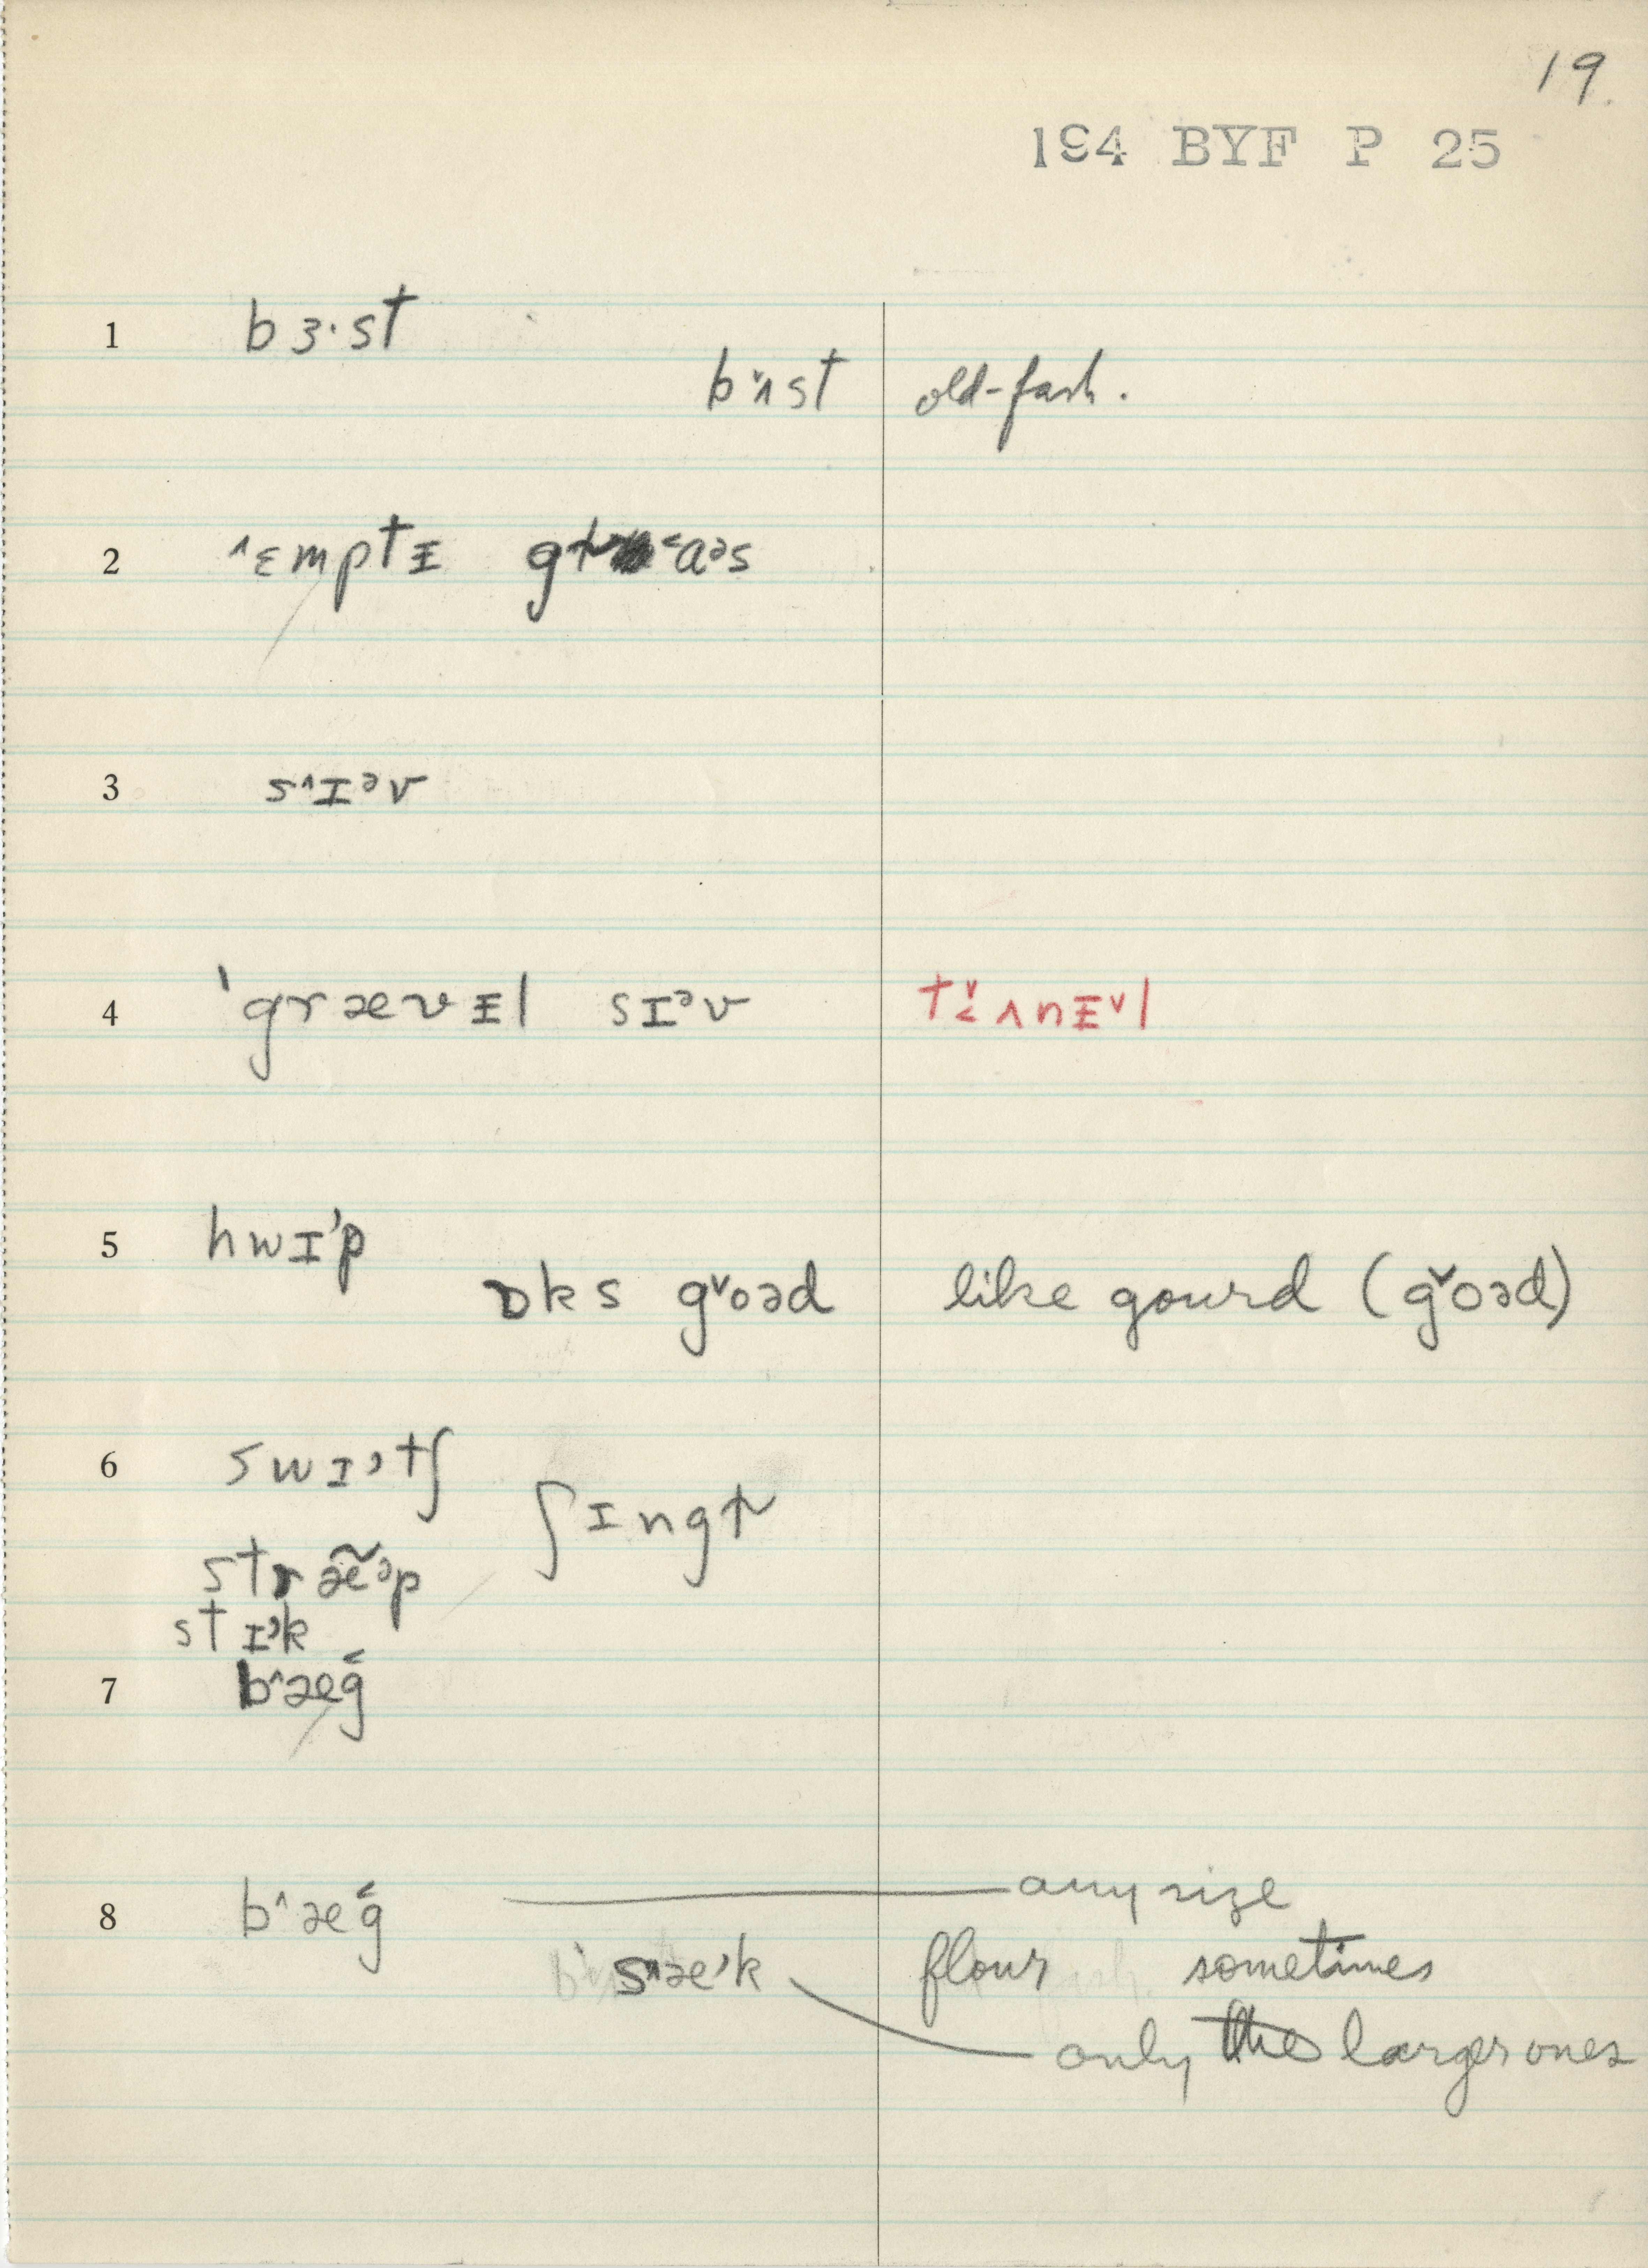 19.
194 BYF P 25
1 bɜ·st
bʌ̌st old-fash.
2 ˄ɛmptᵻ gɚ˂aᵊs
3 s˄ɪᵊv
4 ˈgrævᵻl sɪᵊv tʌ̬nᵻ˅l
5 hwɪ’p
ɒks g˅oəd like gourd (ǧoəd)
6 swɪ’tʃ
ʃɪngɚ
stræ̃ᵊp
stɪᵊk
7 b˄æg˂
8 b˄æg˂ any size
s˄æ’k flour sometimes
only the larger ones